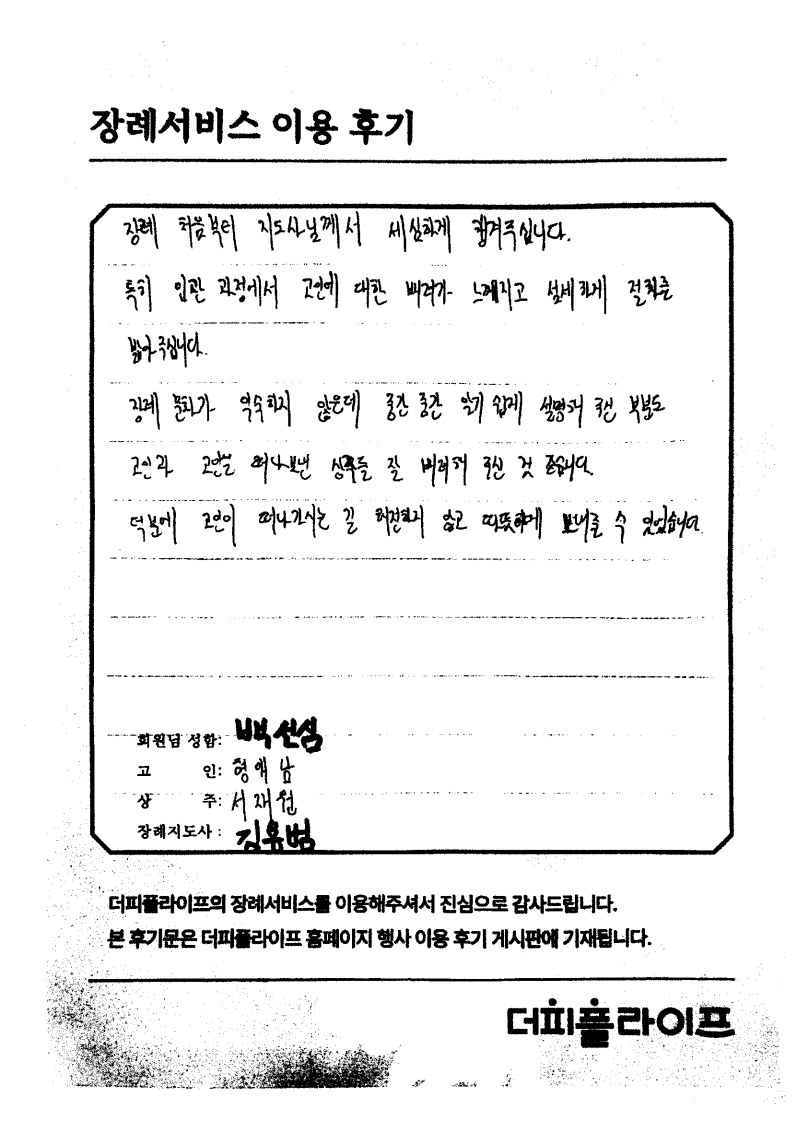 장례서비스 이용 후기
장례 처음부터 지도사님께서 세심하게 챙겨주십니다.
특히 입관 과정에서 고인에 대한 배려가 느껴지고 섬세하게 절차를
밟아 주십니다.
장례 문화가 익숙하지 않은데 중간 중간 알기 쉽게 설명해 주신 부분도
고인과 고인을 떠나보낸 상주들 잘 배려해 주신 것 같습니다.
덕분에 고인이 떠나가시는 길 허전하지 않고 따뜻하게 보내줄 수 있었습니다
회원님 성함: 백선심
고 인: 형애남
상 주: 서재원
장례지도사 : 김유범
더피플라이프의 장례서비스를 이용해주셔서 진심으로 감사드립니다.
본 후기문은 더피플라이프 홈페이지 행사 이용 후기 게시판에 기재됩니다.
더피플라이프